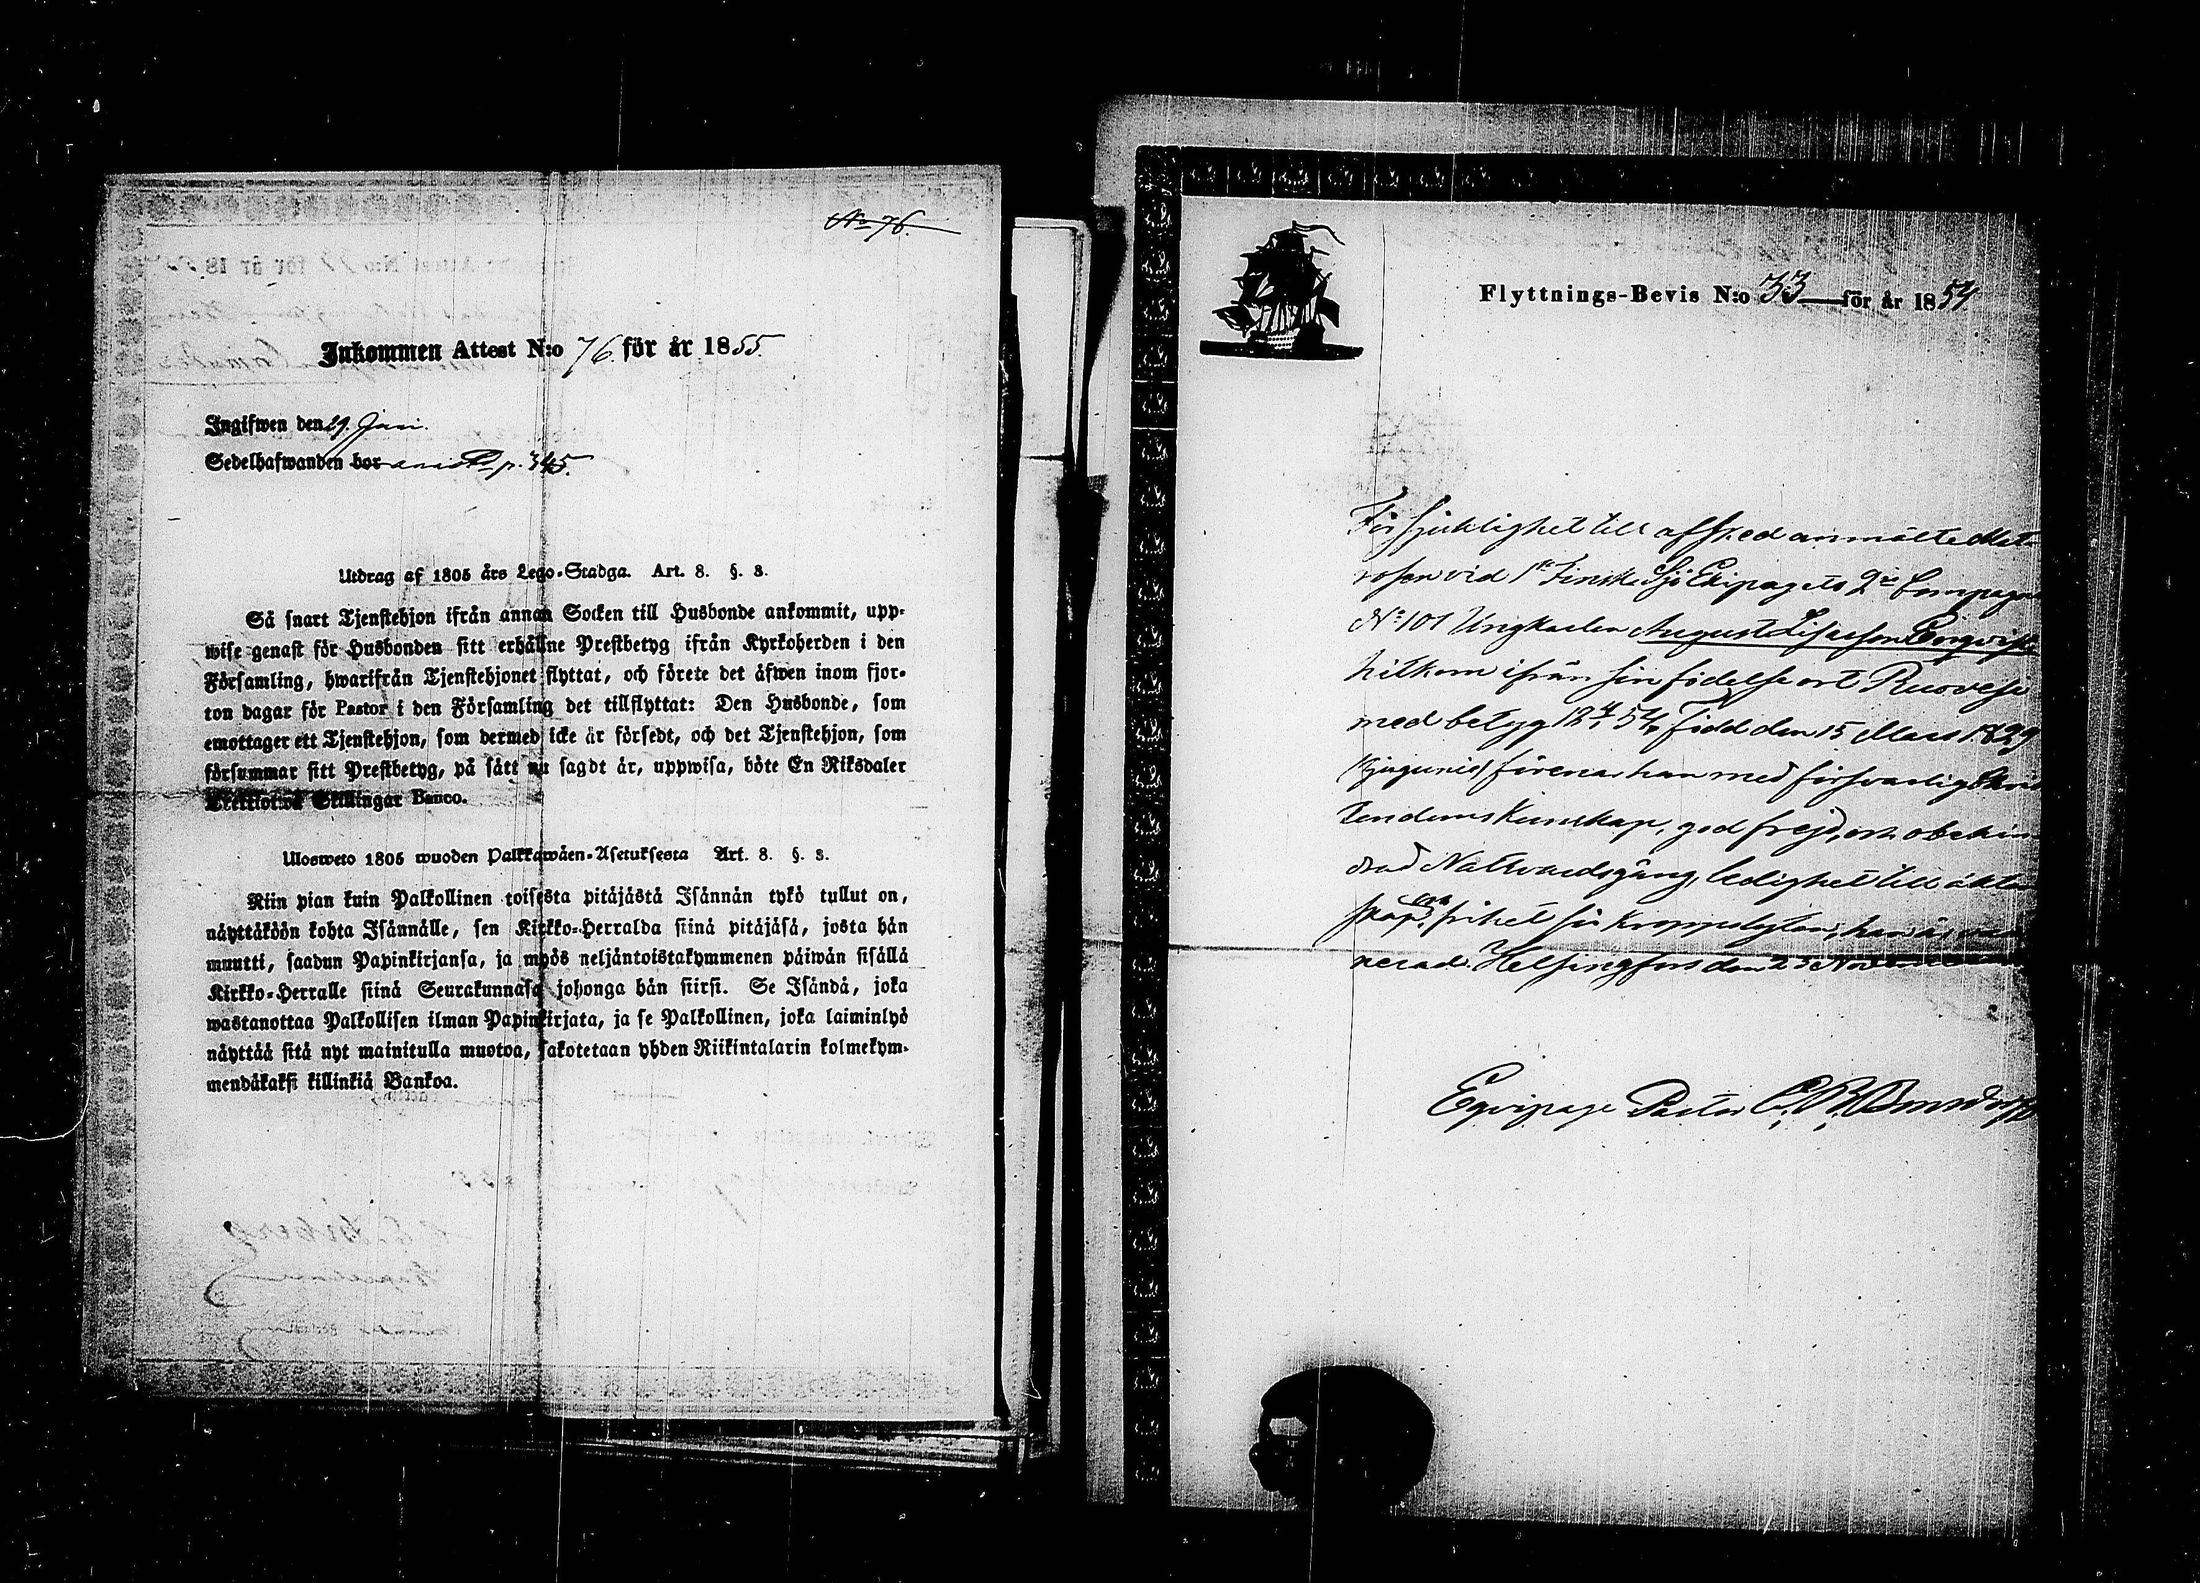 No 76.
Inkommen Attest N:o 76. för år 1855.
Ingifwen den 29. Juni.
Sedelhafwanden bor p. 345.
Utdrag af 1805 års Lego-Stadga. Art. 8. §. 3.
Så snart Tjenstehjon ifrån annan Socken till Husbonde ankommit, upp-
wise genast för Husbonden sitt erhållne Prestbetyg ifrån Kyrkoherden i den
Församling, hwarifrån Tjenstehjonet flyttat, och förete det äfwen inom fjor-
ton dagar för Pastor i den Församling det tillflyttat: Den Husbonde, som
emottager ett Tjenstehjon, som dermed icke är försedt, och det Tjenstehjon, som
försummar sitt Prestbetyg, på sätt nu sagdt är, uppwisa, böte En Riksdaler
Trettiotwå Skillingar Banco.
Ulosweto 1805 wuoden Palkkawäen-Asetuksesta Art. 8. §. 3.
Niin pian kuin Palkollinen toisesta pitäjästä Isännän tykö tullut on,
näyttäköön kohta Isännälle, sen Kirkko-Herralda siinä pitäjäsä, josta hän
muutti, saadun Papinkirjansa, ja myös neljäntoistakymmenen päiwän sisällä
Kirkko-Herralle siinä Seurakunnasa johonga hän siirsi. Se Isändä, joka
wastanottaa Palkollisen ilman Papinkirjata, ja se Palkollinen, joka laiminlyö
näyttää sitä nyt mainitulla muotoa, sakotetaan yhden Riikintalarin kolmekym-
mendäkaksi killinkiä Bankoa.
Flyttnings-Bevis N:o 33 för år 1854
För sjuklighet till afsked anmälte Mat
rosen vid 1a Finska Sjö Ekipagets 2a Compagni
No 101 Ungkarlen August
hitkom ifrån sin födelse ort Ruovesi
med betyg 12/4 54, Född den 15 Mars 1829
förenar han med försvarlig Chris
tendoms kunskap, god frejd, och obehin
drad Nattvardsgång, ledighet till äkten
skap, och frihet för kroppslyten, han är
nerad. Helsingfors den 23 November
Eqvipage Pastor C. R.